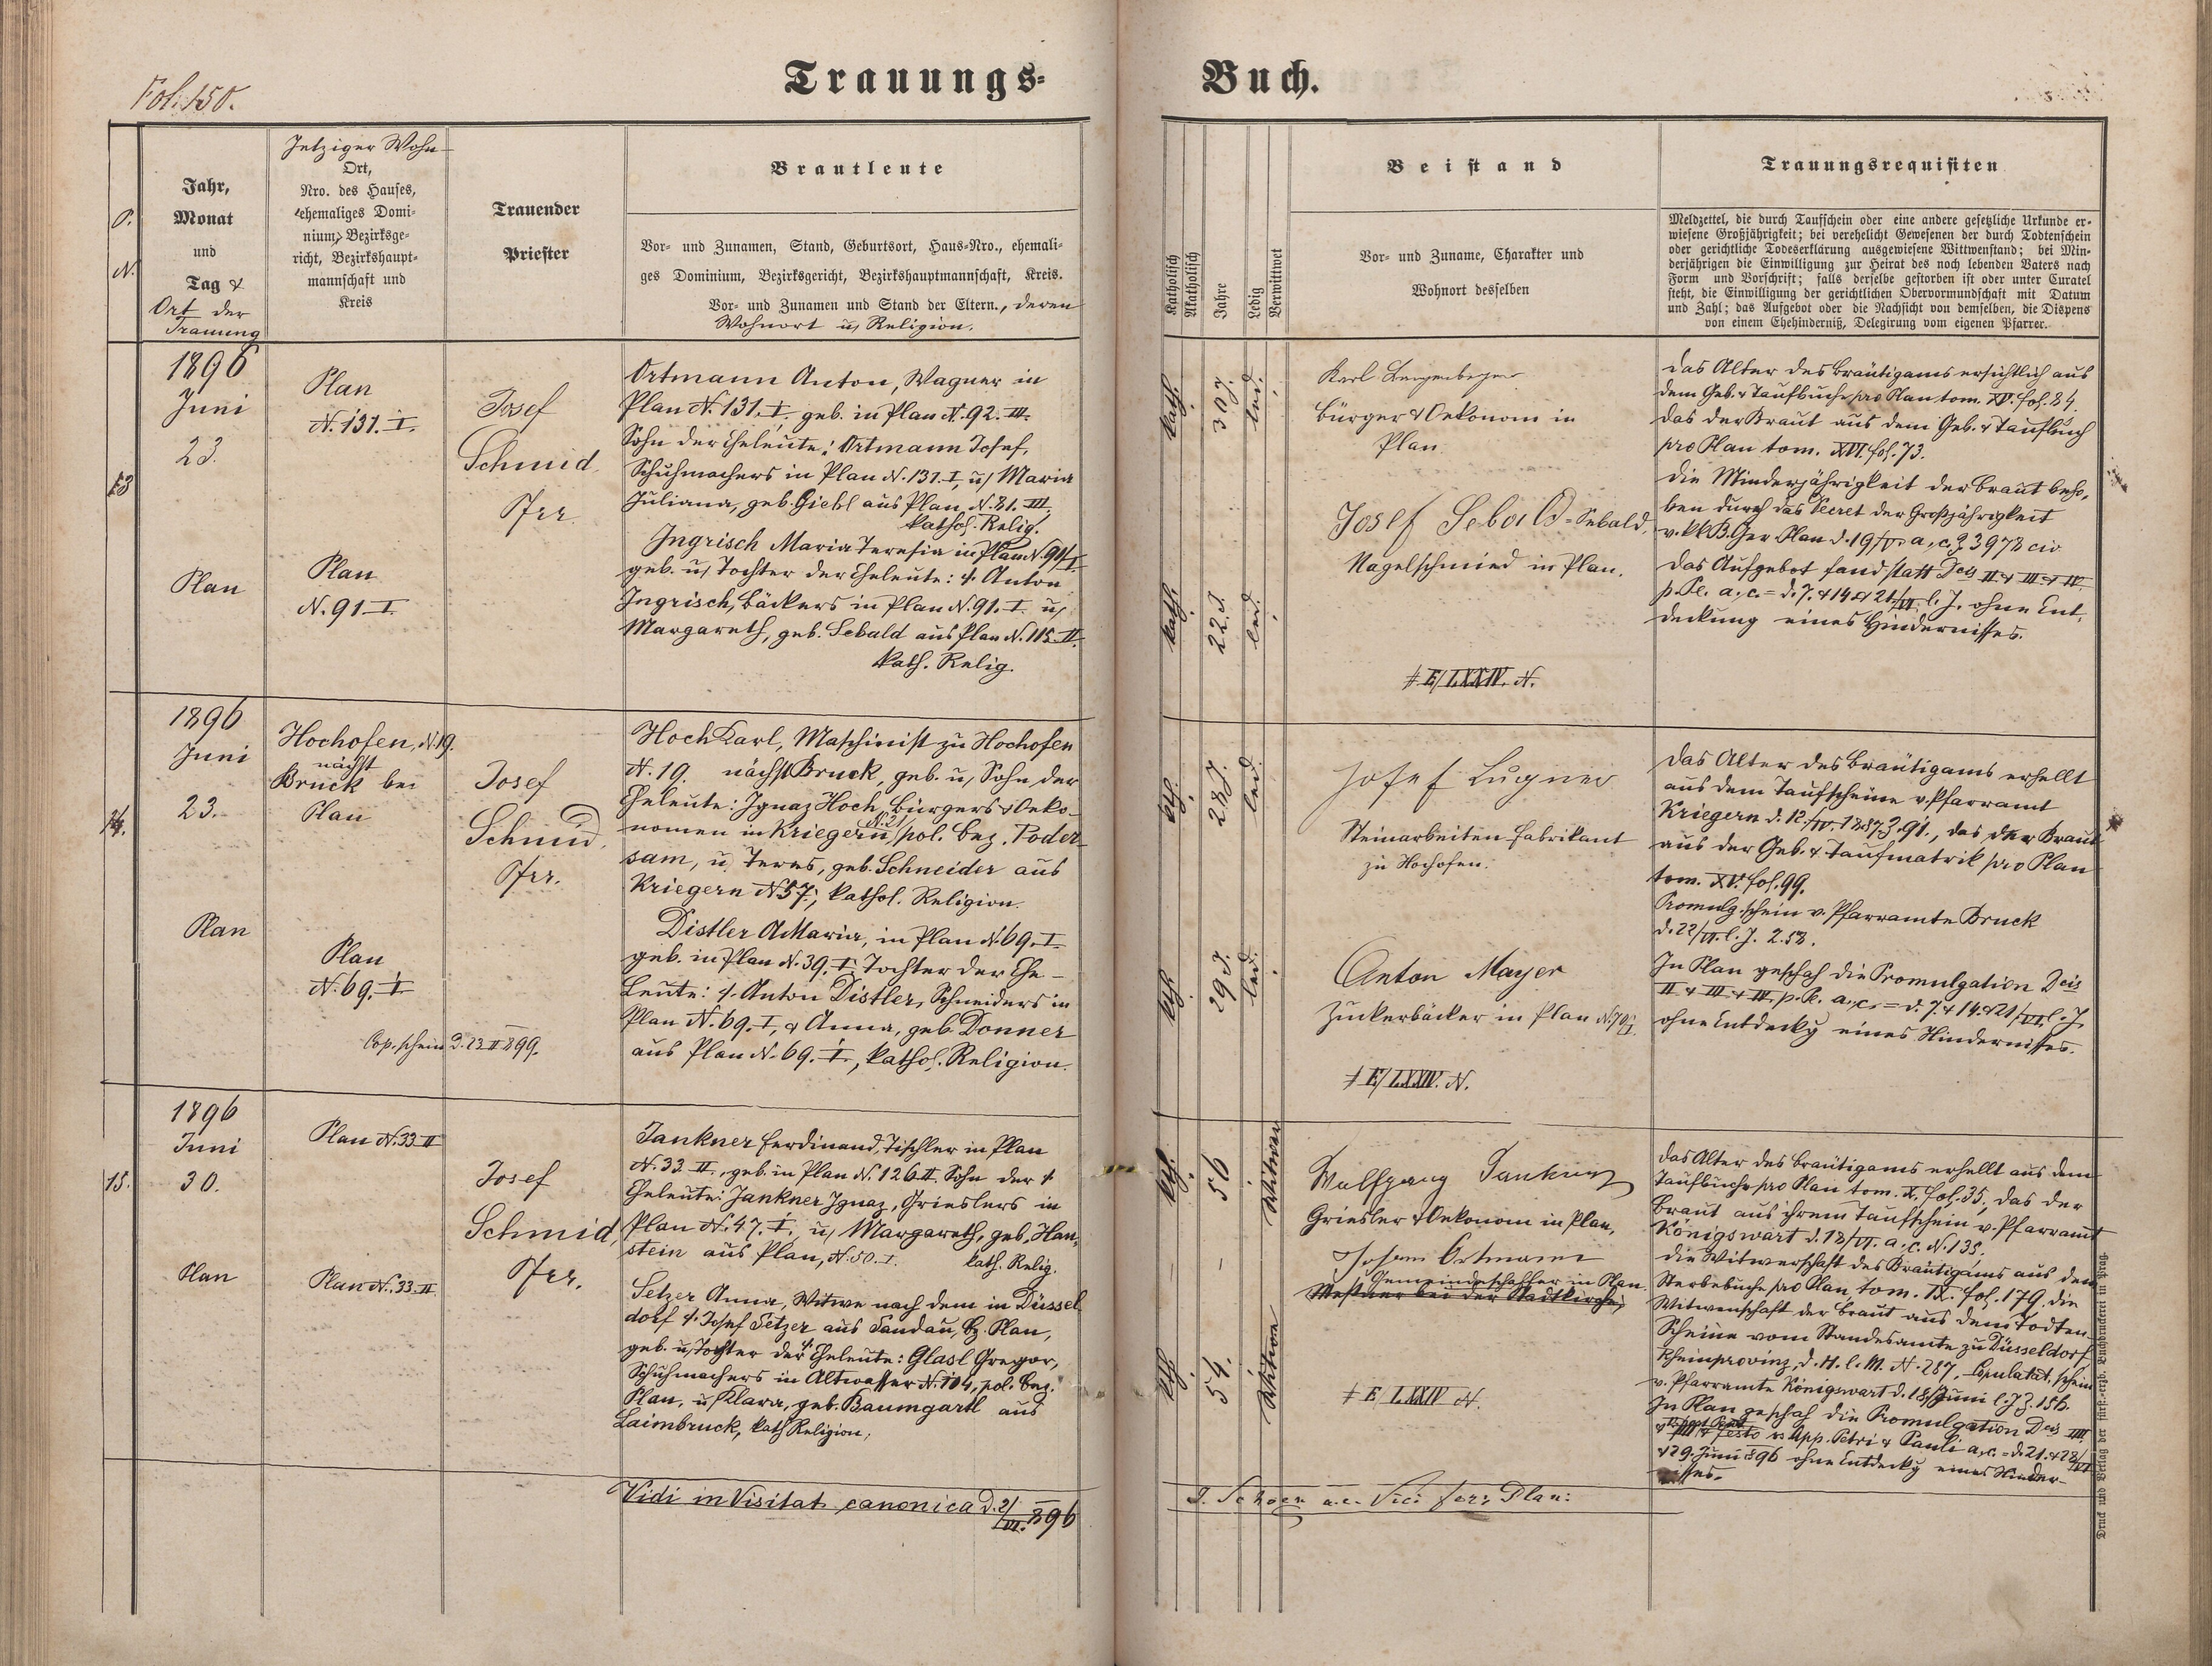 Fol. 150.
Trauungs-
Buch.
P.
N.
Jahr,
Monat
und
Tag &
Ort der
Trauung
Jetziger Wohn-
Ort,
Nro. des Hauses,
ehemaliges Domi-
nium, Bezirksge-
richt, Bezirkshaupt-
mannschaft und
Kreis
Trauender
Priester
Brautleute
Vor- und Zunamen, Stand, Geburtsort, Haus-Nro., ehemali-
ges Dominium, Bezirksgericht, Bezirkshauptmannschaft, Kreis.
Vor- und Zunamen und Stand der Eltern., deren
Wohnort u, Religion.
Katholisch
Akatholisch
Jahre
Ledig
Verwittwet
Beistand
Vor- und Zuname, Charakter und
Wohnort desselben
Trauungsrequisiten
Meldzettel, die durch Taufschein oder eine andere gesetzliche Urkunde er-
wiesene Großjährigkeit; bei verehelicht Gewesenen der durch Todtenschein
oder gerichtliche Todeserklärung ausgewiesene Wittwenstand; bei Min-
derjährigen die Einwilligung zur Heirat des noch lebenden Vaters nach
Form und Vorschrift; falls derselbe gestorben ist oder unter Curatel
steht, die Einwilligung der gerichtlichen Obervormundschaft mit Datum
und Zahl; das Aufgebot oder die Nachsicht von demselben, die Dispens
von einem Ehehinderniß, Delegirung vom eigenen Pfarrer.
13
1896
Juni
23.
Plan
Plan
N. 131. I.
Plan
N. 91 I.
Josef
Schmid,
Pfrr.
Ortmann Anton, Wagner in
Plan N. 131. I. geb. in Plan N. 92. III.
Sohn der Eheleute: Ortmann Josef,
Schuhmachers in Plan N. 131. I, u, Maria
Juliana, geb. Giehl aus Plan, N. 81. III.
kathol. Relig.
Ingrisch Maria Teresia in Plan N. 91/I
geb. u, Tochter der Eheleute: † Anton
Ingrisch, Bäckers in Plan N. 91. I. u,
Margareth, geb. Sebald aus Plan N. 115. II.
kath. Relig.
kath.
30 J.
led.
kath.
22. J.
led.
Karl
Bürger & Oekonom in
Plan.
Josef Sebald = Sebald,
Nagelschmied in Plan.
# E/LXXIV. N.
Das Alter des Bräutigams ersichtlich aus
dem Geb. & Taufbuche pro Plan tom. XV. fol. 84.
das der Braut aus dem Geb. & Taufbuch
pro Plan tom. XVI. fol. 73.
Die Minderjährigkeit der Braut beho-
ben durch das Decret der Großjährigkeit
v. kk B. Ger Plan d. 19/ a. c. Z 3978 civ
Das Aufgebot fand statt Dcis II & III & IV
p. Pe. a. c. = d. 7. & 14 & 21/VI. l. J. ohne Ent-
deckung eines Hindernisses.
14.
1896
Juni
23.
Plan
Hochofen, N. 19.
nächst
Bruck bei
Plan
Plan
N. 69. I.
Cop. schein d. 23 II 899.
Josef
Schmid,
Pfrr.
Hoch Karl, Maschinist zu Hochofen
N. 19. nächst Bruck, geb. u, Sohn der
Eheleute: Ignaz Hoch, Bürgers & Oeko-
nomen in Kriegern N. 21, pol. Bez. Poder-
sam, u, Teres, geb. Schneider aus
Kriegern N 57., kathol. Religion.
Distler AMaria, in Plan N. 69. I
geb. in Plan N. 39. I. Tochter der Ehe-
Leute: †. Anton Distler, Schneiders in
Plan N. 69. I, & Anna, geb. Donner
aus Plan N. 69. I., kathol. Religion.
kth.
28 J.
led.
kth.
29 J.
led.
Josef Lugner
Steinarbeiten-Fabrikant
zu Hochofen.
Anton Mayer
Zuckerbäcker in Plan N. 79/I.
# E/LXXIV. N.
Das Alter des Bräutigams erhellt
aus dem Taufscheine v. Pfarramt
Kriegern d. 12./IV. 1887 Z. 91., das der Braut
aus der Geb. & Taufmatrik pro Plan
tom. XV. fol. 99.
Promulg. schein v. Pfarramte Bruck
d. 22/VI. l. J. Z. 58.
In Plan geschah die Promulgation Dcis
II & III & IV. p. P. a. c. = d. 7. & 14. & 21/VI. l. J.
ohne Entdeckg eines Hindernisses.
15.
1896
Juni
30.
Plan
Plan N. 33 II
Plan N. 33. II
Josef
Schmid,
Pfrr.
Jankner Ferdinand, Tischler in Plan
N. 33. II., geb. in Plan N. 126 II Sohn der †
Eheleute: Jankner Ignaz, Grieslers in
Plan N. 47. I. u, Margareth, geb. Han-
stein aus Plan, N. 50. I. kath. Relig.
Setzer Anna, Witwe nach dem in Düssel-
dorf †. Josef Setzer aus Sandau, Bz. Plan,
geb. u, Tochter der † Eheleute: Glasl Gregor,
Schuhmachers in Altwasser N. 104, pol. Bez.
Plan, u, Klara, geb. Baumgartl aus
Laimbruck, kath Religion,
kth.
56
Witwer
kth.
54.
Witwe
Wolfgang Jankner
Griesler & Oekonom in Plan,
Johann Ortmann
Gemeindeschaffer in Plan.
Meßner bei der Stadtkirche,
# E/LXXIV N.
Das Alter des Bräutigams erhellt aus dem
Taufbuche pro Plan tom. X. fol. 35, das der
Braut aus ihrem Taufschein v. Pfarramt
Königswart d. 18/VI. a. c. N. 135.
Die Witwerschaft des Bräutigams aus dem
Sterbebuche pro Plan, tom. IX. fol. 179. die
Witwenschaft der Braut aus dem Todten-
Scheine vom Standesamte zu Düsseldorf,
Rheinprovinz, d. H. l. M. N. 287, Copulat. schein
v. Pfarramte Königswart d. 18/Juni l. J. Z. 156.
In Plan geschah die Promulgation Dcis IIII
& Festo ss App. Petri & Pauli a. c. = d. 21. & 28/VI
& 29. Juni 896 ohne Entdeckg eines Hinder-
nisses.
Vidi in Visitat. canonica d. 2/VI. 896
J. Schoen a. c. Vici for: Plan:
Druck und Verlag der fürst.-erzb. Buchdruckerei in Prag.